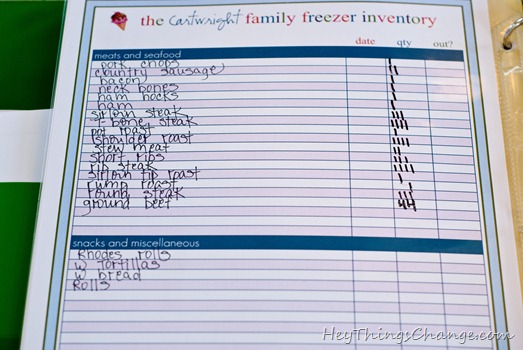 the Cartwright family freezer inventory
date qty out?
meats and seafood
pork chops
country sausage
bacon
neck bones
ham hocks
ham
sirloin steak
T-bone steak
pot roast
shoulder roast
stew meat
short ribs
rib steak
sirloin tip roast
rump roast
round steak
ground beef
snacks and miscellaneous
Rhodes rolls
w tortillas
w bread
Rolls
HeyThingsChange.com